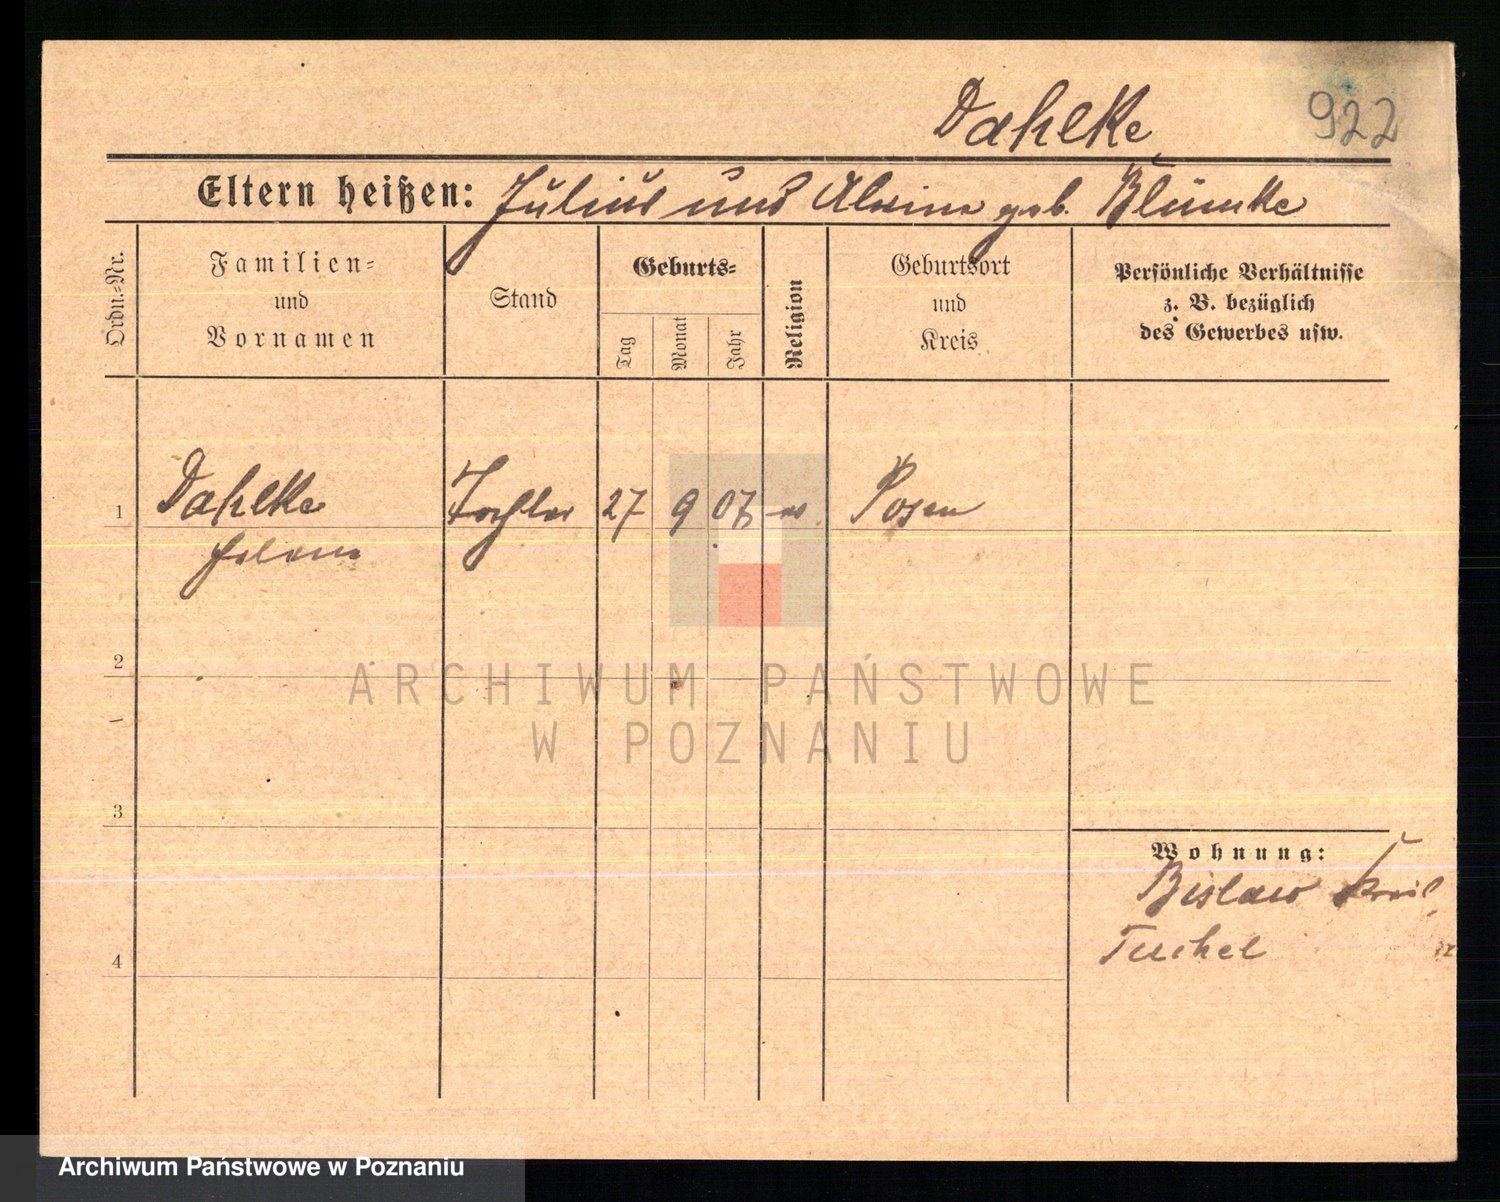 Dahlke
922
Eltern heißen: Julius und Alwine geb. Blümke
Ordn.-Nr.
Familien-
und
Vornamen
Stand
Geburts-
Tag
Monat
Jahr
Religion
Geburtsort
und
Kreis
Persönliche Verhältnisse
z. B. bezüglich
des Gewerbes usw.
1 Dahlke Tochter 27 9 07 Posen
2
3
4
Wohnung:
Bislaw Kreis
Tuchel
ARCHIWUM PAŃSTWOWE
W POZNANIU
Archiwum Państwowe w Poznaniu